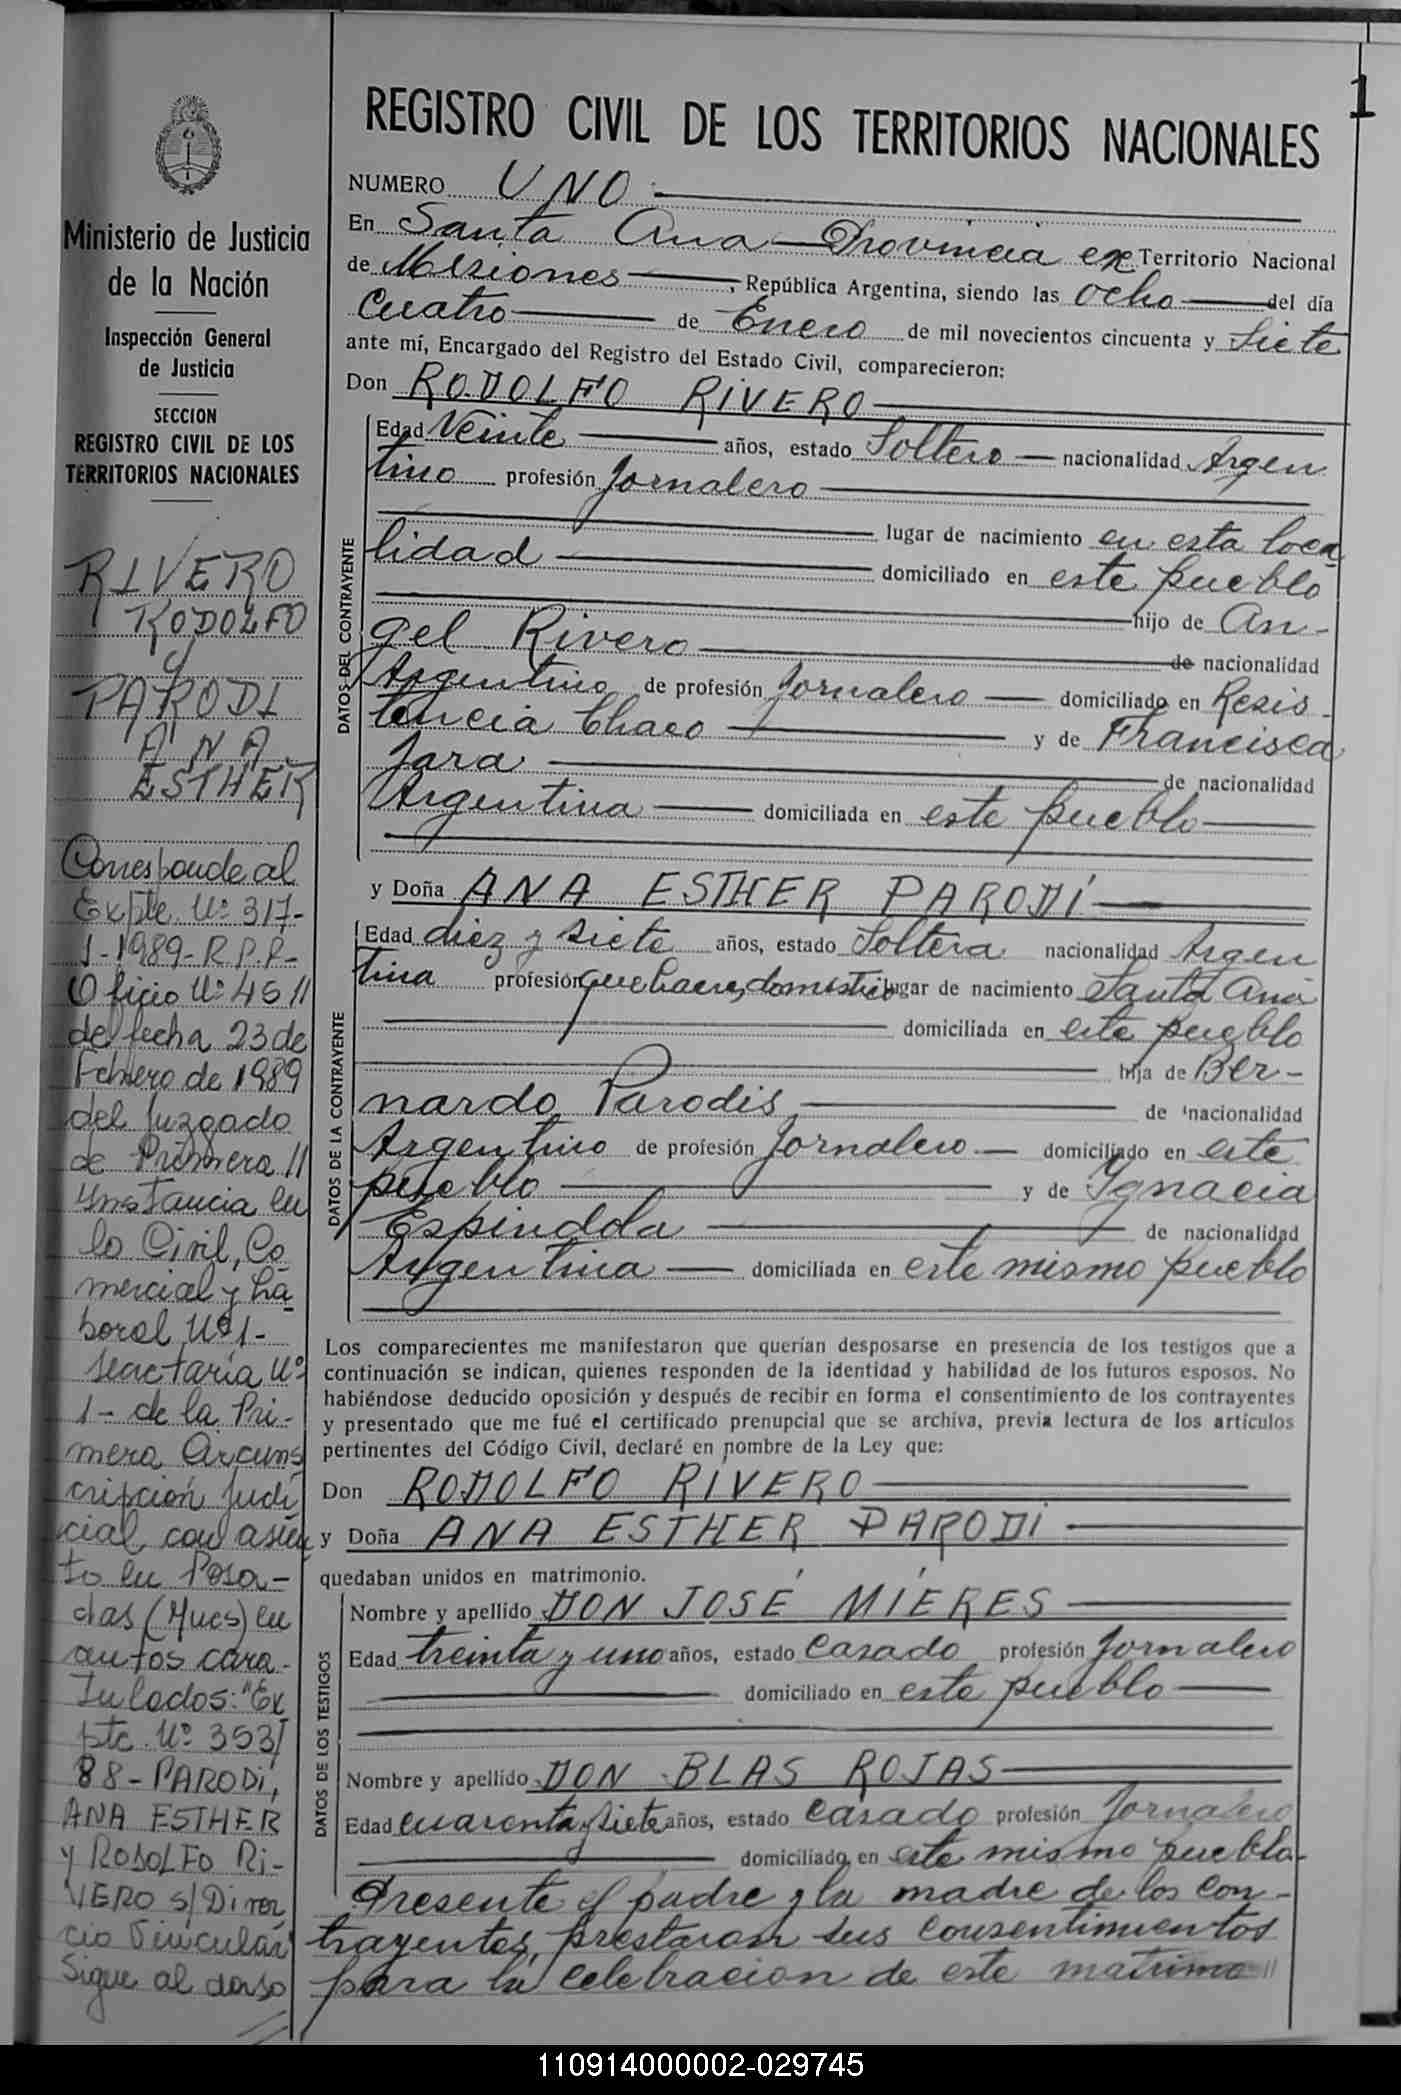 1
REGISTRO CIVIL DE LOS TERRITORIOS NACIONALES
NUMERO UNO
En Santa Ana Provincia ex Territorio Nacional
de Misiones, República Argentina, siendo las ocho del día
cuatro de Enero de mil novecientos cincuenta y Siete
ante mí, Encargado del Registro del Estado Civil, comparecieron:
Don RODOLFO RIVERO
DATOS DEL CONTRAYENTE
Edad Veinte años, estado Soltero nacionalidad Argen
tino profesión Jornalero
lugar de nacimiento en esta loca
lidad domiciliado en este pueblo
hijo de An-
gel Rivero de nacionalidad
Argentino de profesión Jornalero domiciliado en Resis-
tencia Chaco y de Francisca
Jara de nacionalidad
Argentina domiciliada en este pueblo
y Doña ANA ESTHER PARODI
DATOS DE LA CONTRAYENTE
Edad diez y siete años, estado Soltera nacionalidad Argen
tina profesión quehaceres domestico lugar de nacimiento Santa Ana
domiciliada en este pueblo
hija de Ber-
nardo Parodis de nacionalidad
Argentino de profesión Jornalero domiciliado en este
pueblo y de Ignacia
Espindola de nacionalidad
Argentina domiciliada en este mismo pueblo
Los comparecientes me manifestaron que querían desposarse en presencia de los testigos que a
continuación se indican, quienes responden de la identidad y habilidad de los futuros esposos. No
habiéndose deducido oposición y después de recibir en forma el consentimiento de los contrayentes
y presentado que me fué el certificado prenupcial que se archiva, previa lectura de los artículos
pertinentes del Código Civil, declaré en nombre de la Ley que:
Don RODOLFO RIVERO
y Doña ANA ESTHER PARODI
quedaban unidos en matrimonio.
DATOS DE LOS TESTIGOS
Nombre y apellido DON JOSÉ MIÉRES
Edad treinta y uno años, estado Casado profesión Jornalero
domiciliado en este pueblo
Nombre y apellido DON BLAS ROJAS
Edad cuarenta y siete años, estado Casado profesión Jornalero
domiciliado en este mismo pueblo-
Presente el padre y la madre de los con-
trayentes, prestaron sus consentimientos
para la celebracion de este matrimo//
Ministerio de Justicia
de la Nación
Inspección General
de Justicia
SECCION
REGISTRO CIVIL DE LOS
TERRITORIOS NACIONALES
RIVERO
RODOLFO
y
PARODI
ANA
ESTHER
Corresponde al
Expte. Nº 317-
J-1989-R.P.P.-
Oficio Nº 45//
de fecha 23 de
Febrero de 1989
del Juzgado
de Primera //
Instancia en
lo Civil, Co
mercial y La
boral Nº 1-
Secretaría Nº
1- de la Pri-
mera Circuns
cripción Judi
cial con asien
to en Posa-
das (Mnes) en
autos cara-
tulados: "Ex
pte. Nº 353/
88-PARODI,
ANA ESTHER
y RODOLFO RI-
VERO s/Divor
cio Vincular"
Sigue al dorso
//
110914000002-029745